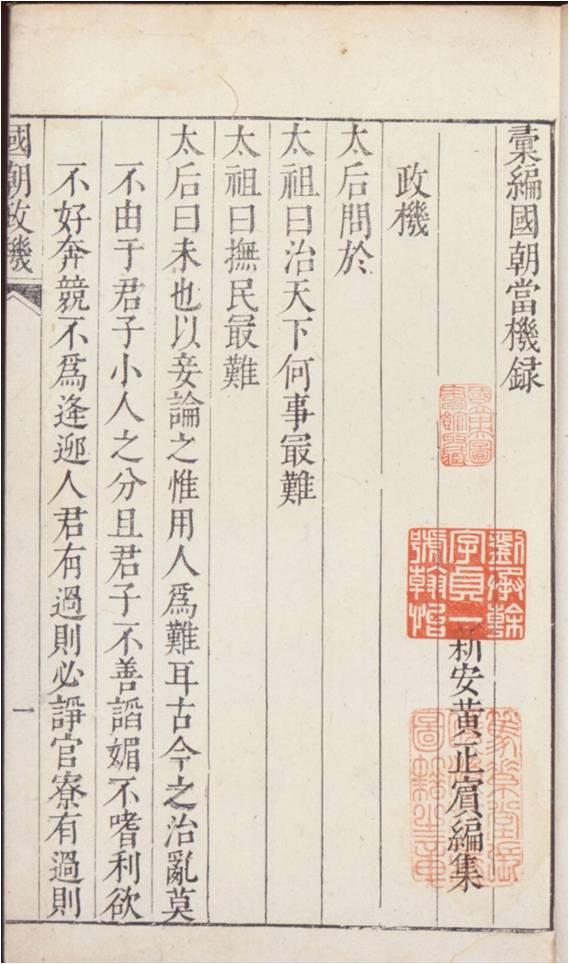 彙編國朝當機録
新安黃正賔編集
政機
太后問於
太祖曰治天下何事㝡難
太祖曰撫民㝡難
太后曰未也以妾論之惟用人爲難耳古今之治亂莫
不由于君子小人之分且君子不善謟媚不嗜利欲
不好奔競不爲逢迎人君有過則必諍官寮有過則
國朝政機
一
劉承幹
字貞一
號翰怡